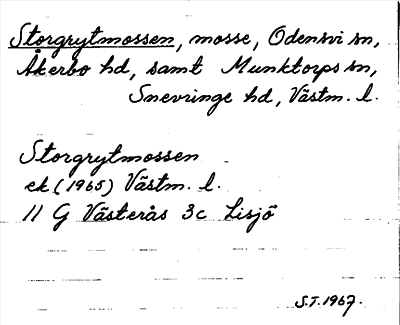 Storgrytmossen, mosse, Odensvi sn,
Åkerbo hd, samt Munktorps sn,
Snevringe hd, Västm. l.
Storgrytmossen
ek (1965) Västm. l.
11 G Västerås 3c Lisjö
S.T. 1967.